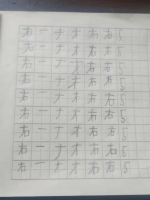 右 一 ナ 才 右 右 5
右 一 ナ 才 右 右 5
右 一 ナ 才 右 右 5
右 一 ナ 才 右 右 5
右 一 ナ 才 右 右 5
右 一 ナ 才 右 右 5
右 一 ナ 才 右 右 5
右 一 ナ 才 右 右 5
右 一 ナ 才 右 右 5
右 一 ナ 才 右 右 5